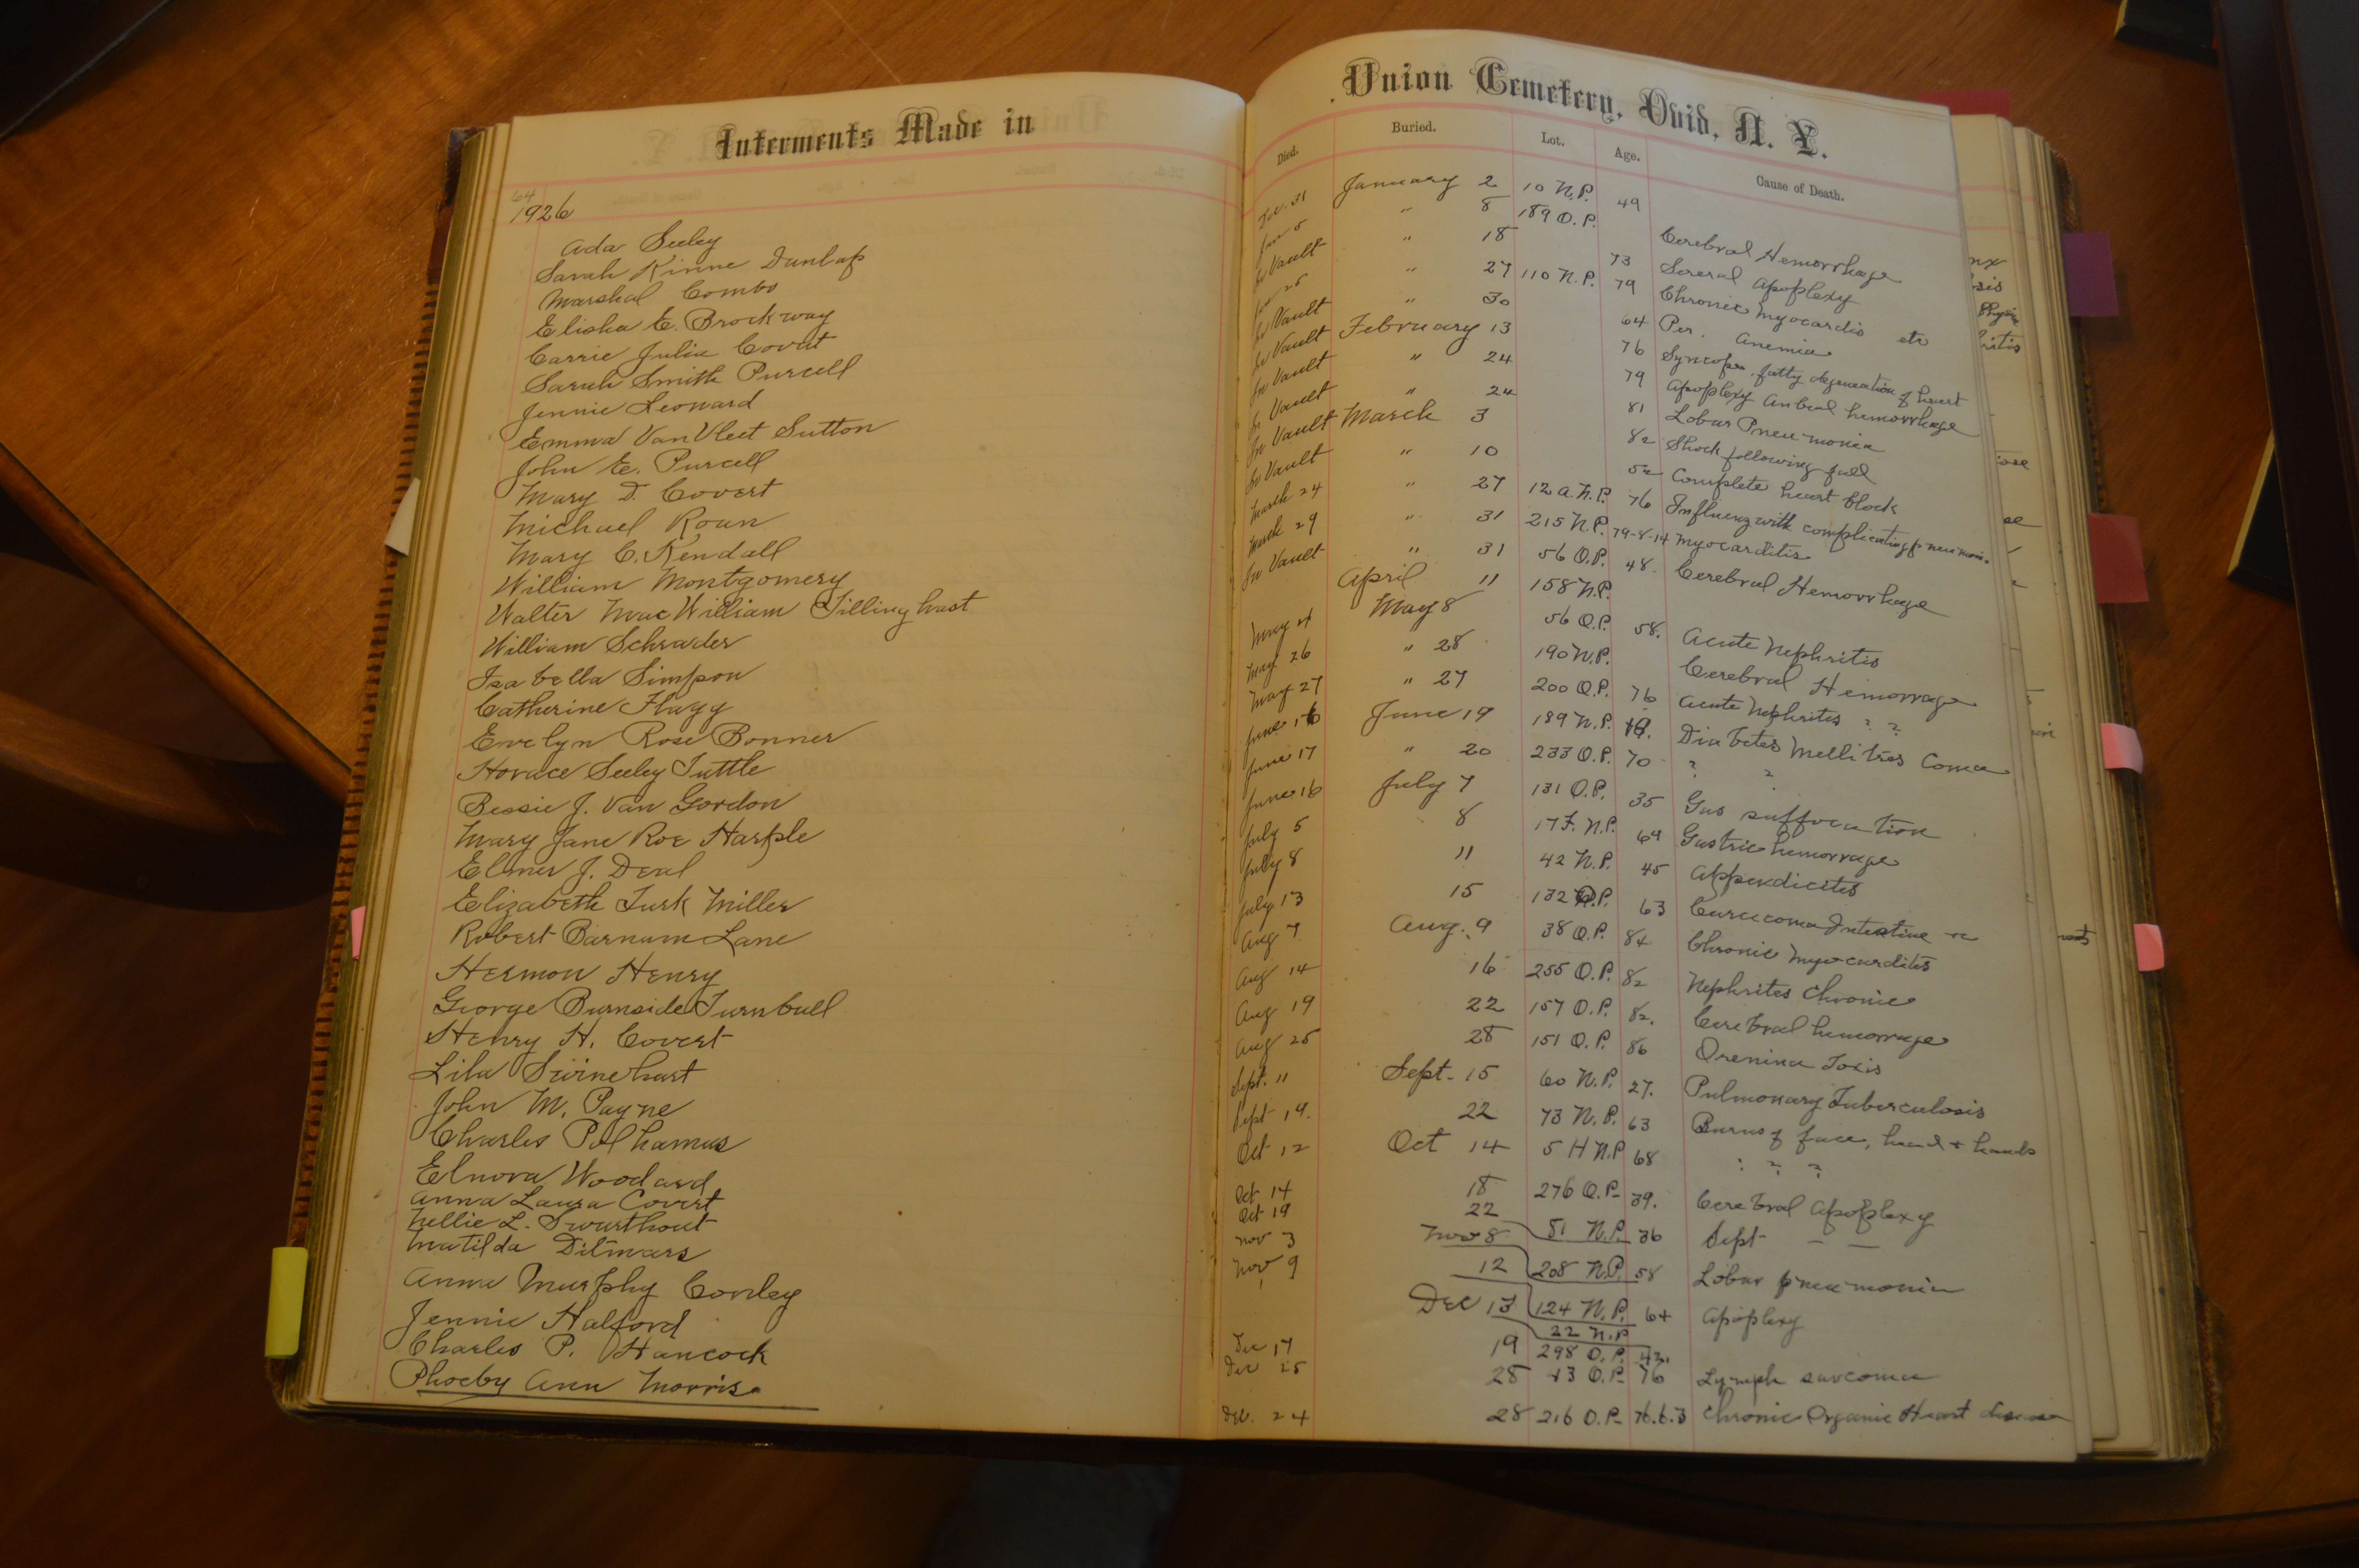 Interments Made in
64
1926
Ada Seeley
Sarah Kinne Dunlap
Marshal Combs
Elisha E. Brockway
Carrie Julia Covert
Sarah Smith Purcell
Jennie Leonard
Emma Van Vleet Sutton
John E. Purcell
Mary D. Covert
Michael Roan
Mary C. Kendall
William Montgomery
Walter Mac William Tillinghast
William Schrader
Isabella Simpson
Catherine Flagg
Evelyn Rose Bonner
Horace Seeley Tuttle
Bessie J. Van Gordon
Mary Jane Roe Harple
Elmer J. Deal
Elizabeth Turk Miller
Robert Barnum Lane
Hermon Henry
George Burnside Turnbull
Henry H. Covert
Lila Swinehart
John M. Payne
Charles Polhamus
Elnora Woodard
Anna Laura Covert
Nellie L. Swarthout
Matilda Ditmars
Anna Murphy Conley
Jennie Halford
Charles P. Hancock
Phoeby Ann Morris
Union Cemetery, Ovid, N. Y.
Died. Buried. Lot. Age. Cause of Death.
Dec. 31 January 2 10 N.P. 49
Jan 5 " 8 189 O.P. Cerebral Hemorrhage
In Vault " 18 73 Apoplexy
Jan 25 " 27 110 N.P. 79 Chronic Myocardis etc
In Vault " 30 64 Per. Anemia
In Vault February 13 76 Syncope, fatty degeneration of heart
In Vault " 24 79 Apoplexy hemorrhage
In Vault " 24 81 Lobar Pneumonia
In Vault March 3 82 Shock following fall
In Vault " 10 52 Complete heart block
March 24 " 27 12 A. N.P. 76 Influenz with complicating pneumon.
March 29 " 31 215 N.P. 79-8-14 Myocarditis
In Vault " 31 56 O.P. 48. Cerebral Hemorrhage
April 11 158 N.P.
May 4 May 8 56 O.P. 58. Acute Nephritis
May 26 " 28 190 N.P. Cerebral Hemorrage
May 27 " 27 200 O.P. 76 Acute Nephrites ? ?
June 16 June 19 189 N.P. Diabetes Mellitres Coma
June 17 " 20 233 O.P. 70 ? ?
June 16 July 7 131 O.P. 35 Gas suffocation
July 5 8 17 F. N.P. 69 Gastric hemorrage
July 8 11 42 N.P. 45 Appendicites
July 13 15 132 O.P. 63 Carcicoma Intestine
Aug 7 Aug. 9 38 O.P. 84 Chronic Myocardites
Aug 14 16 255 O.P. 82 Nephrites Chronic
Aug 19 22 157 O.P. 82. Cerebral hemorrage
Aug 25 28 151 O.P. 86 Toxis
Sept. 11 Sept. 15 60 N.P. 27. Pulmonary Tuberculosis
Sept 19. 22 73 N.P. 63 Burns of face, head + hands
Oct 12 Oct 14 5 H N.P. 68 ? ? ?
Oct 14 18 276 O.P. 39. Cerebral Apoplexy
Oct 19 22 51 N.P. 36 Sept — —
Nov 3 Nov 8 208 N.P. 58 Lobar pneumonia
Nov 9 12 124 N.P. 64 Apoplexy
Dec 13 22 N.P.
Dec 17 19 298 O.P. 42.
Dec 25 28 43 O.P. 76 Lymph sarcoma
Dec. 24 28 216 O.P. 76.6.3 Chronic Organic Heart disease